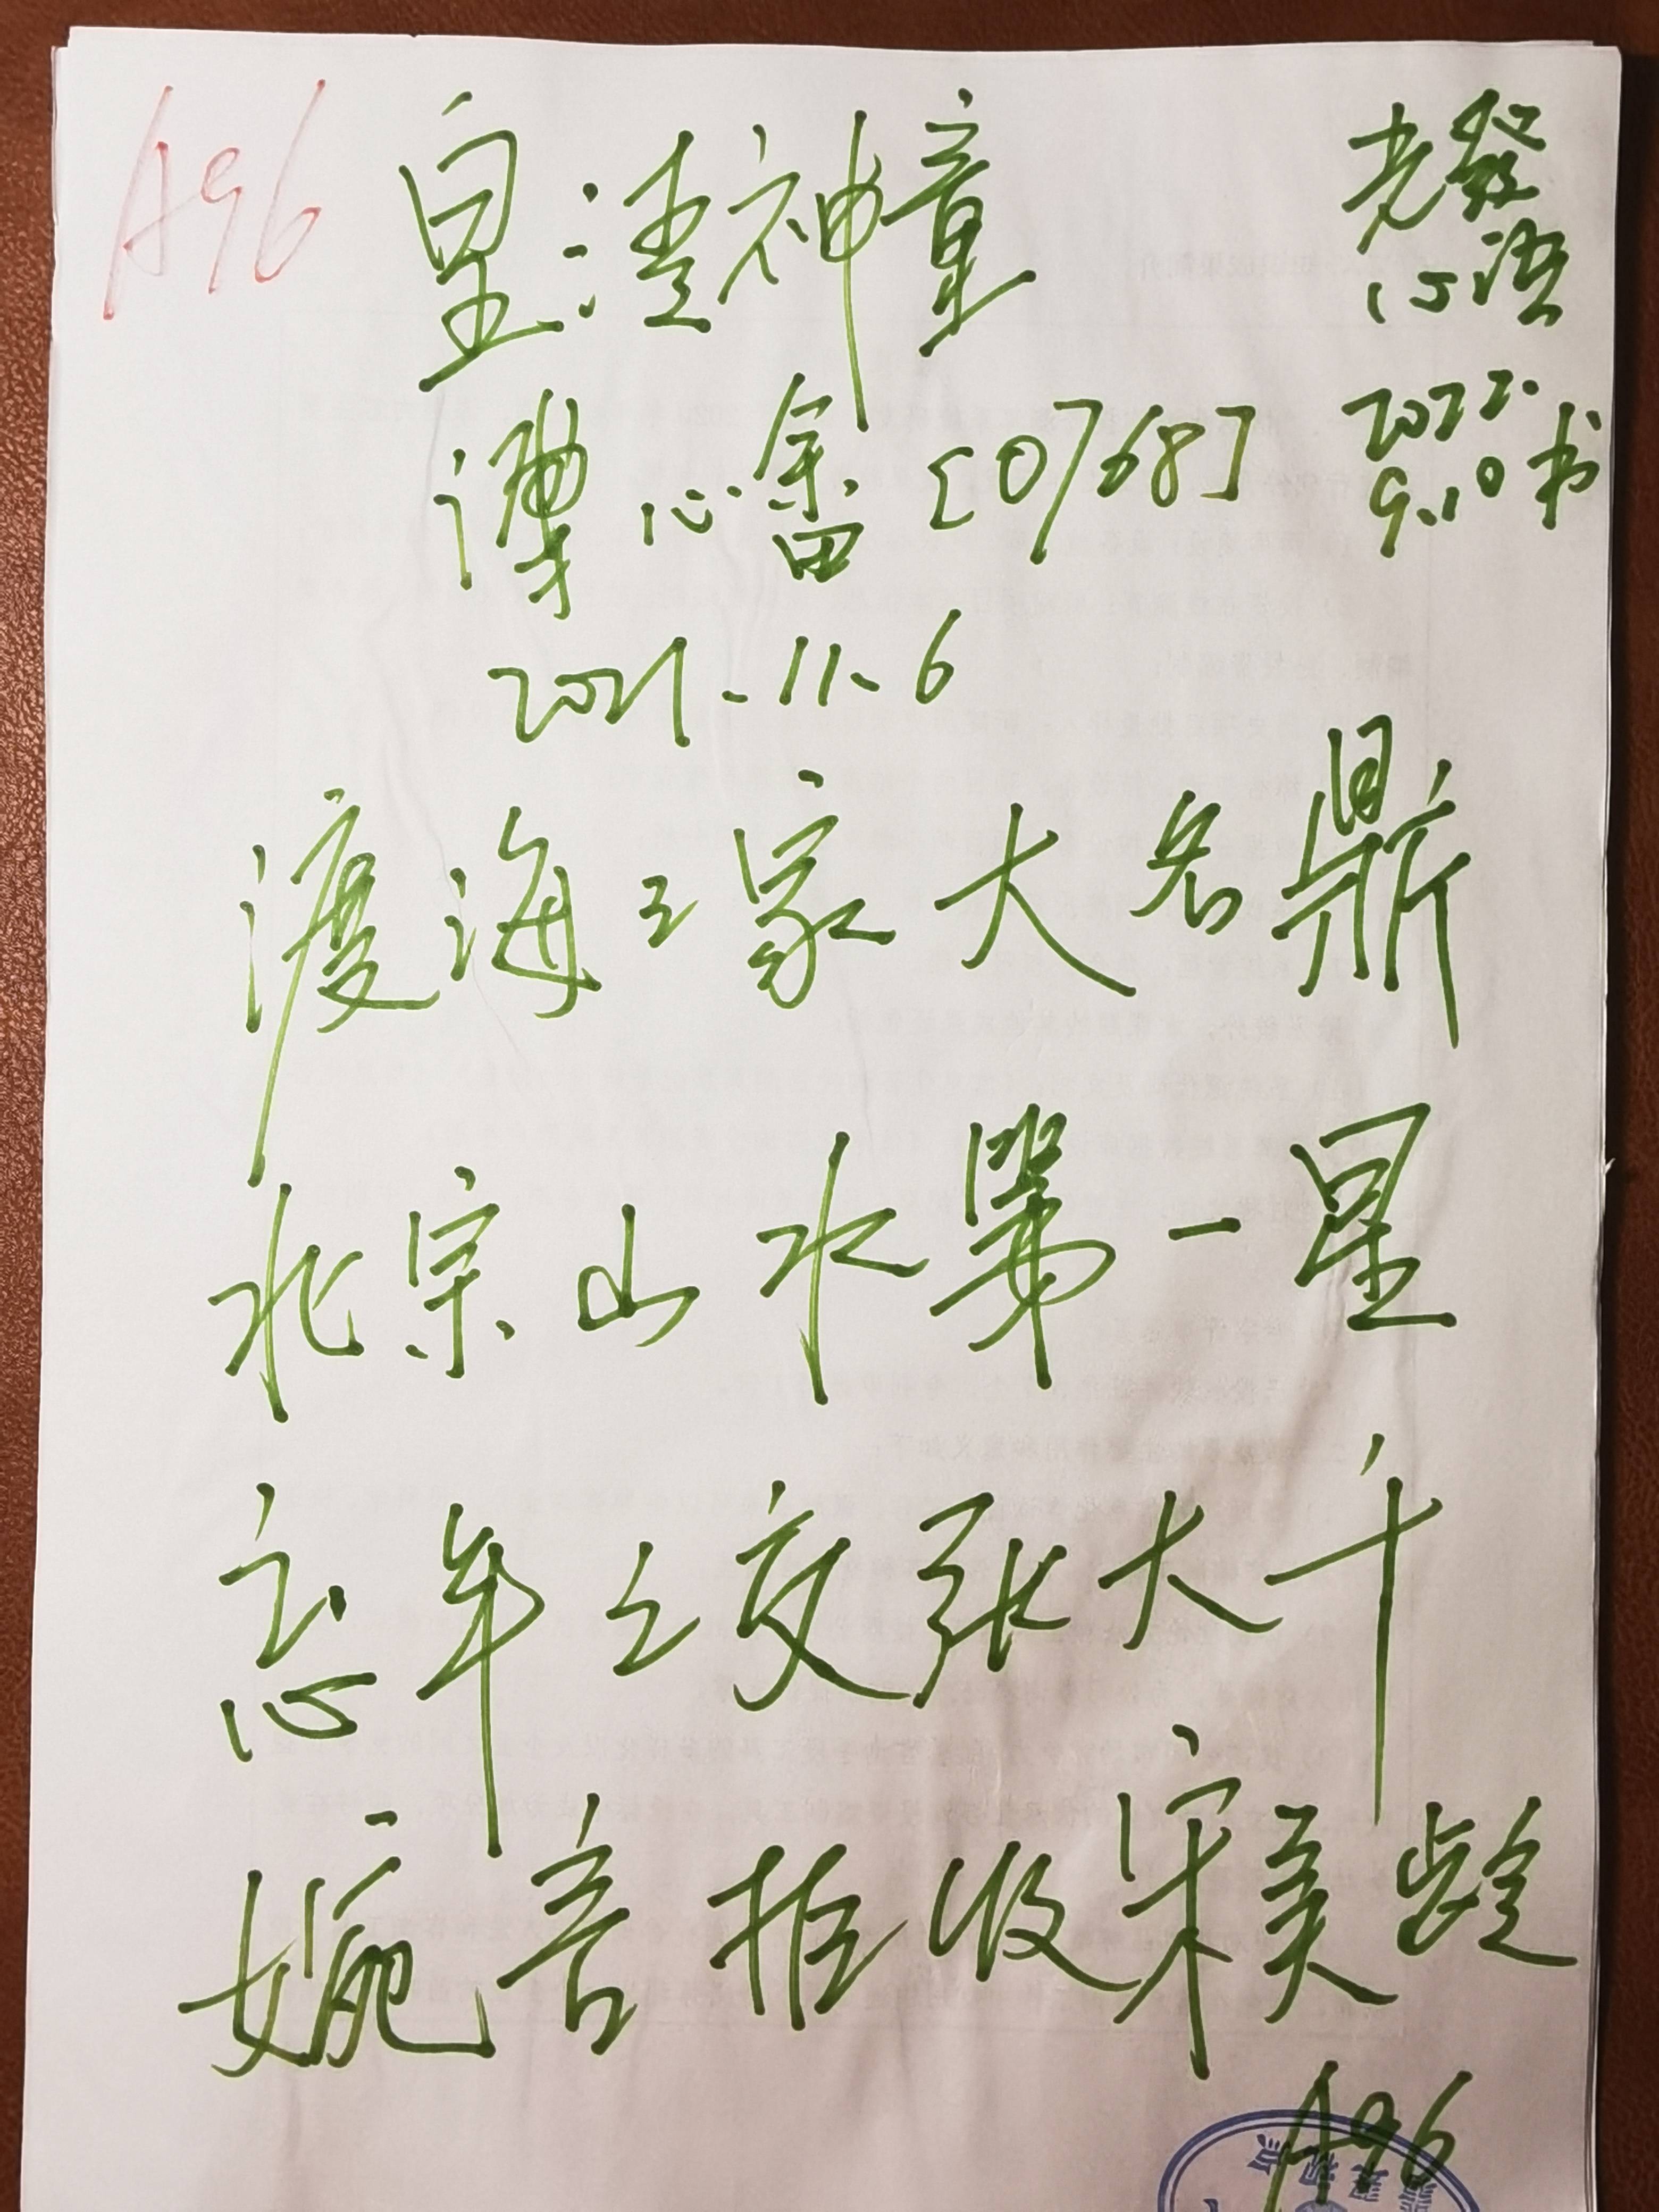 A96
皇清神童
溥心畬[0768]
2021.11.6
老发
心语
2022.
9.10书
渡海三家大名鼎
北宗山水第一星
忘年之交张大千
婉言拒收宋美龄
A96